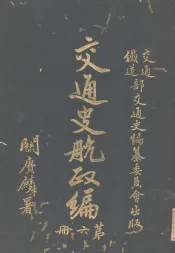 交通
鐵道部交通史編纂委員會出版
交通史航政編
第六冊
關賡麟署